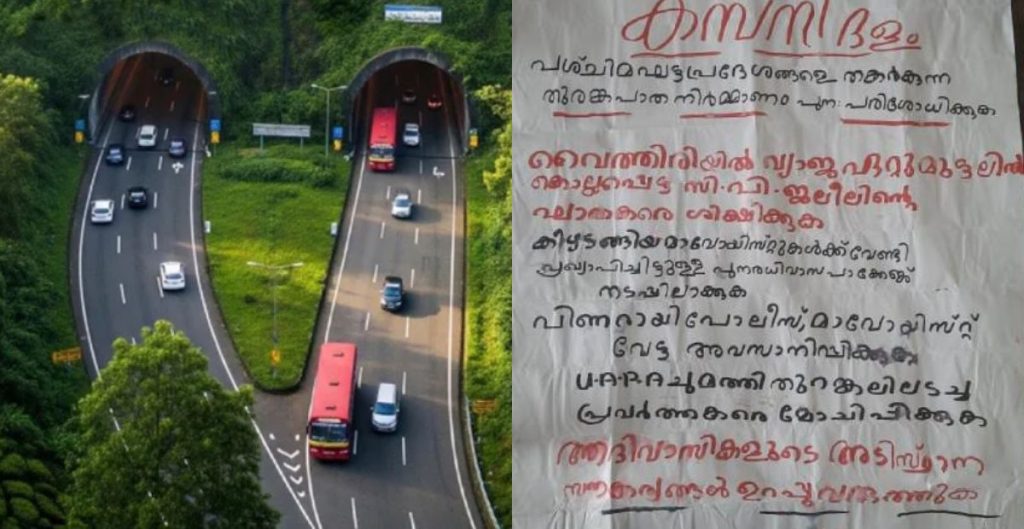 കമ്പനി ദളം
പശ്ചിമഘട്ടപ്രദേശങ്ങളെ തകർക്കുന്ന
തുരങ്കപാത നിർമ്മാണം പുന:പരിശോധിക്കുക
വൈത്തിരിയിൽ വ്യാജ ഏറ്റുമുട്ടലിൽ
കൊല്ലപ്പെട്ട സി.പി.ജലീലിന്റെ
ഘാതകരെ ശിക്ഷിക്കുക
കീഴടങ്ങിയ മാവോയിസ്റ്റുകൾക്ക് വേണ്ടി
പ്രഖ്യാപിച്ചിട്ടുള്ള പുനരധിവാസ പാക്കേജ്
നടപ്പിലാക്കുക
പിണറായി പോലീസ്, മാവോയിസ്റ്റ്
വേട്ട അവസാനിപ്പിക്കുക
U.A.P.A ചുമത്തി തുറങ്കലിലടച്ച
പ്രവർത്തകരെ മോചിപ്പിക്കുക
ആദിവാസികളുടെ അടിസ്ഥാന
സൗകര്യങ്ങൾ ഉറപ്പുവരുത്തുക